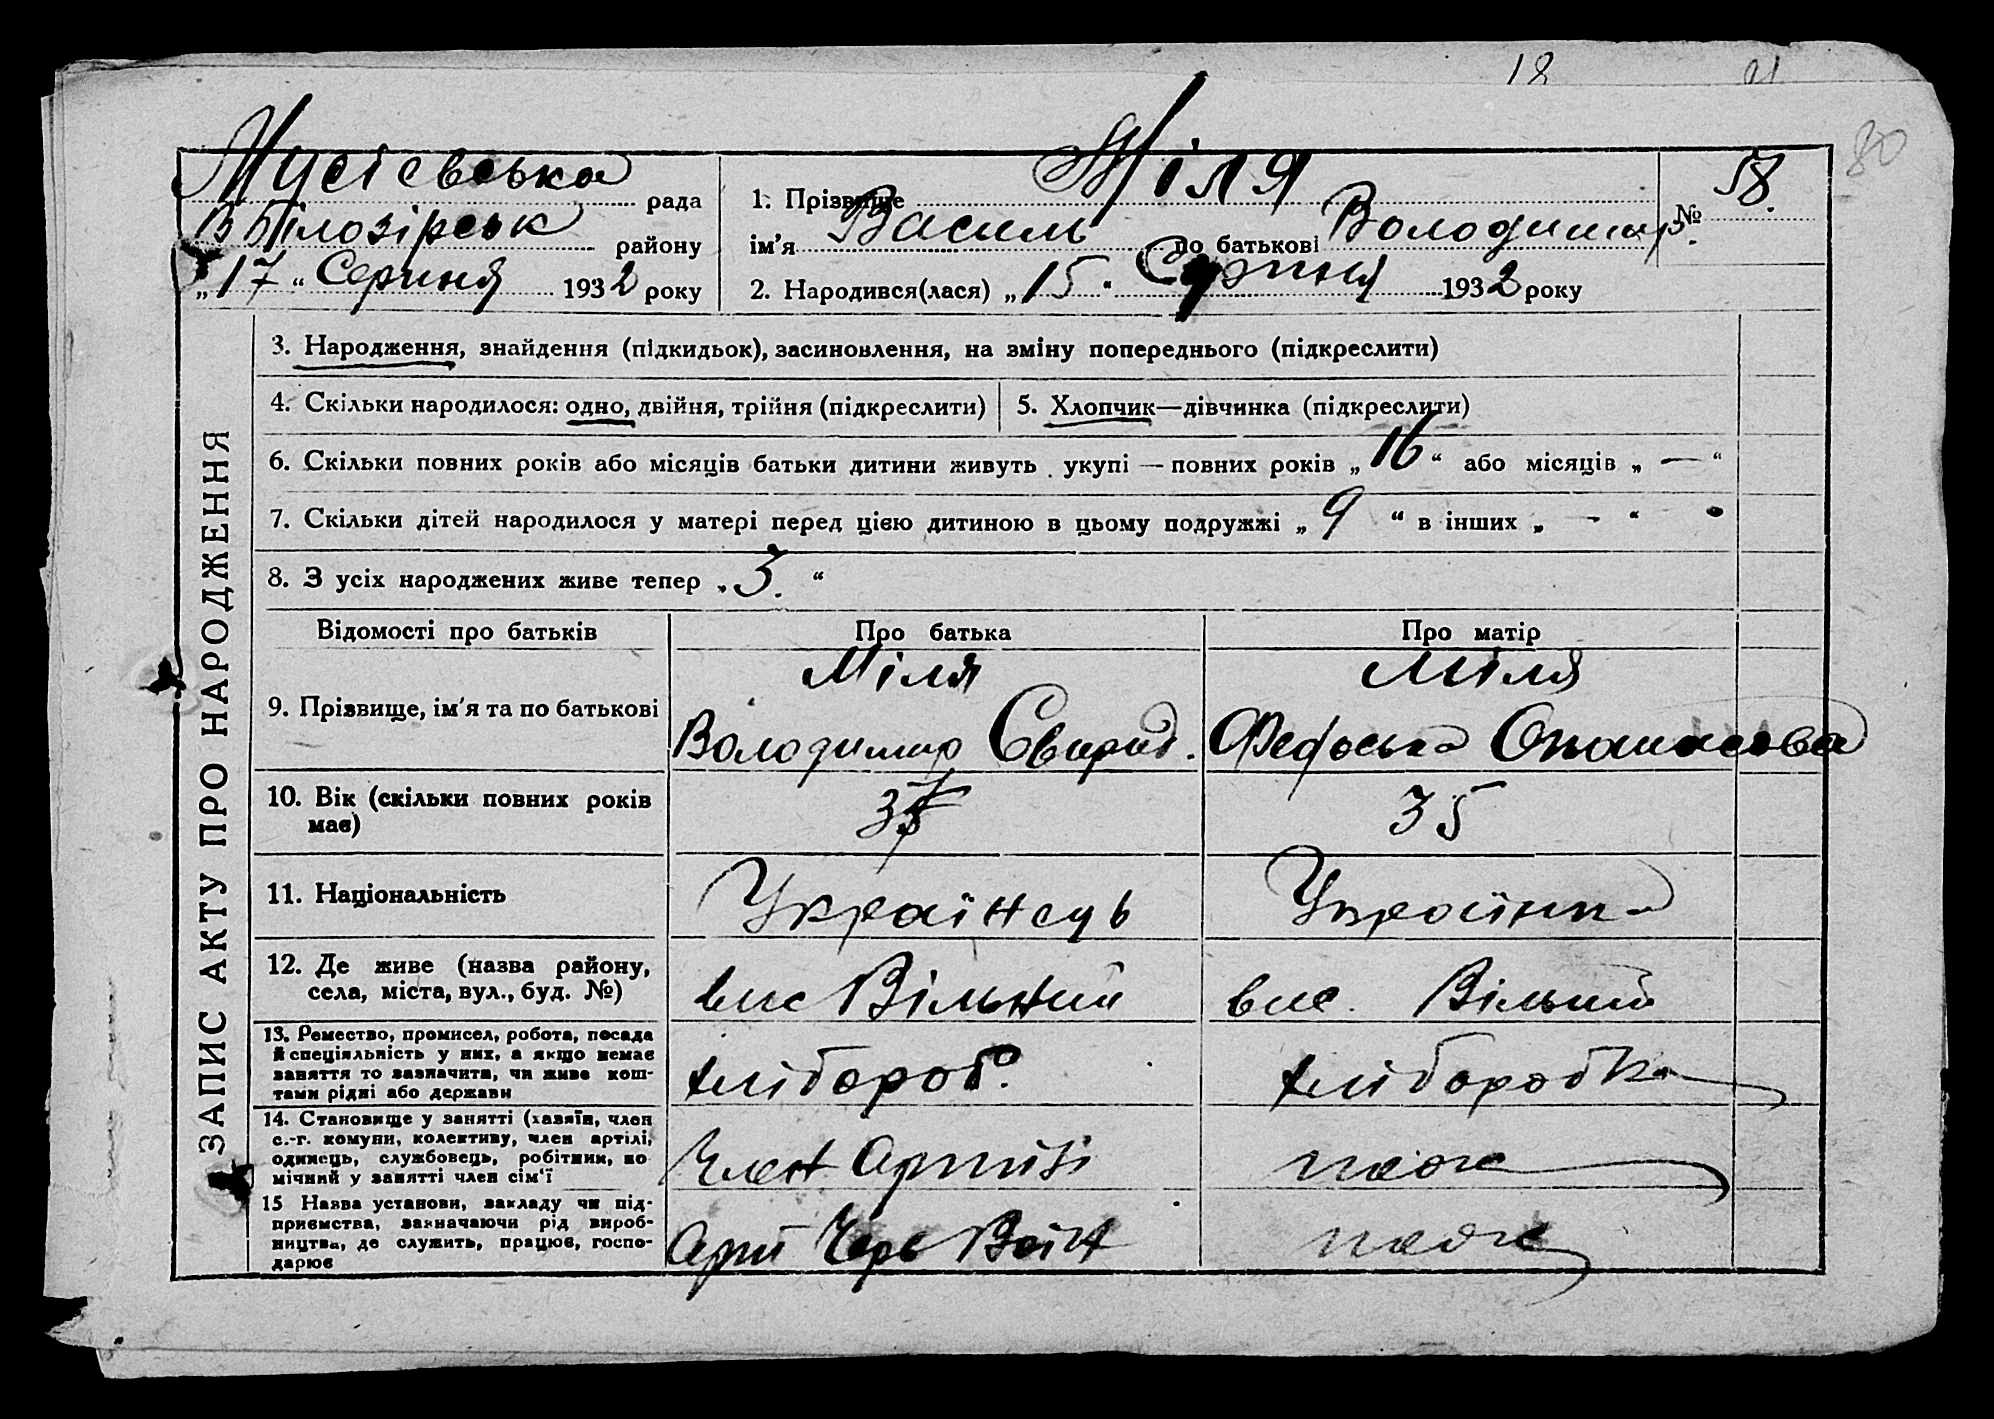 18 21
30
Мусієвська рада
В Білозірськ району
„17“ Серпня 1932 року
1. Прізвище Міля
ім’я Василь по батькові Володимир
№ 58.
2. Народився(лася) „15“ Серпня 1932 року
ЗАПИС АКТУ ПРО НАРОДЖЕННЯ
3. Народження, знайдення (підкидьок), засиновлення, на зміну попереднього (підкреслити)
4. Скільки народилося: одно, двійня, трійня (підкреслити)
5. Хлопчик—дівчинка (підкреслити)
6. Скільки повних років або місяців батьки дитини живуть укупі — повних років „16“ або місяців „—“
7. Скільки дітей народилося у матері перед цією дитиною в цьому подружжі „9“ в інших „-“
8. З усіх народжених живе тепер „3.“
Відомості про батьків Про батька Про матір
9. Прізвище, ім’я та по батькові
Міля
Володимир Свирид.
Міля
Федоська Опанасова
10. Вік (скільки повних років
має)
35
11. Національність
Українець
Українка
12. Де живе (назва району,
села, міста, вул., буд. №)
вис Вільний
вис. Вільний
13. Ремество, промисел, робота, посада
й спеціяльність у них, а якщо немає
заняття то зазначити, чи живе кош-
тами рідні або держави
хлібороб.
хліборобка
14. Становище у занятті (хазяїн, член
с.-г. комуни, колективу, член артілі,
одинець, службовець, робітник, по
мічний у занятті член сім‘ї
Член Артілі
теж
15 Назва установи, закладу чи під-
приємства, зазначаючи рід вироб-
ництва, де служить, працює, госпо-
дарює
Арт Черв
теж